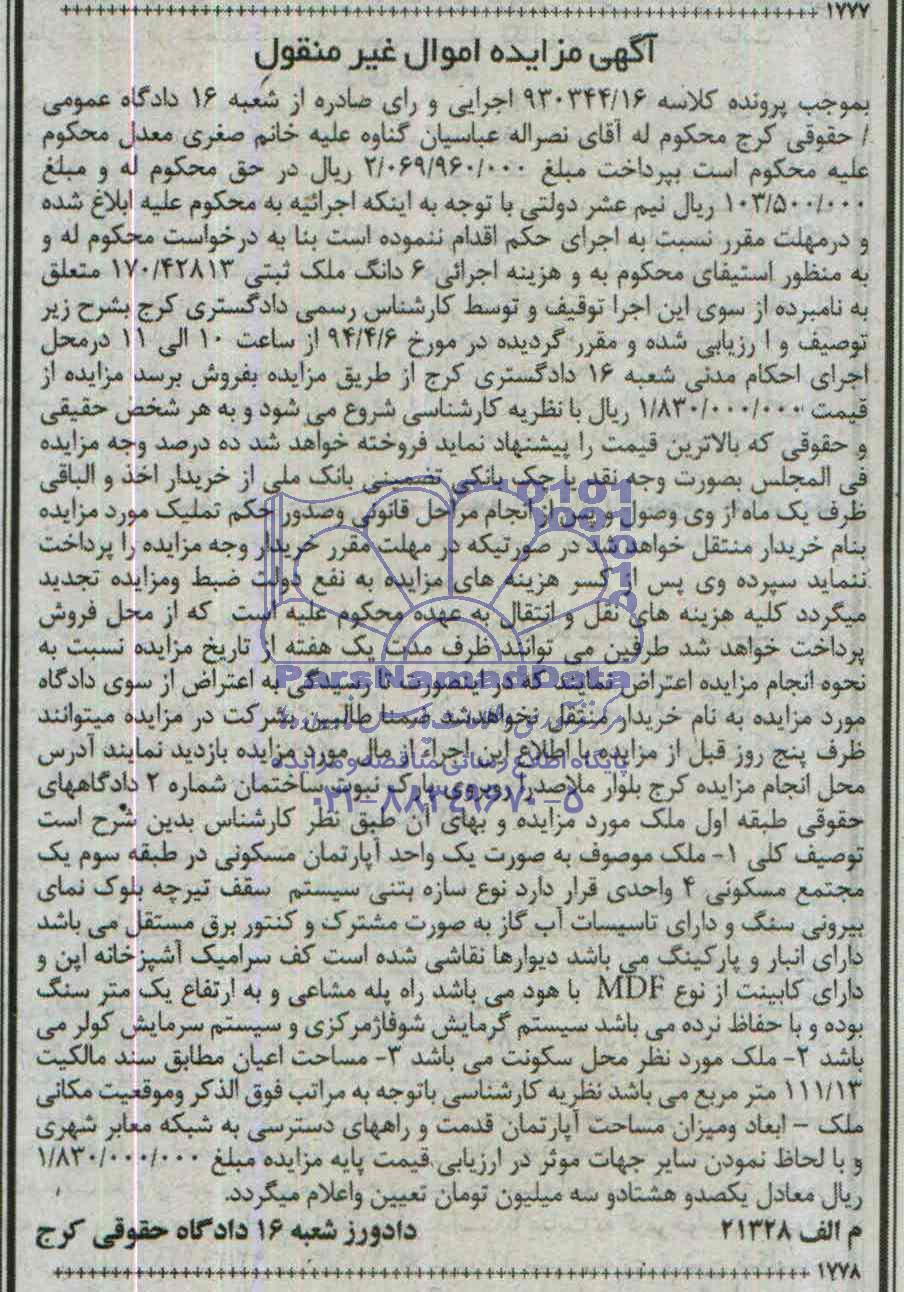 ۱۷۷۷
آگهی مزایده اموال غیر منقول
بموجب پرونده کلاسه ۹۳۰۳۴۴/۱۶ اجرایی و رای صادره از شعبه ۱۶ دادگاه عمومی
/ حقوقی کرج محکوم له آقای نصراله عباسیان گناوه علیه خانم صغری معدل محکوم
علیه محکوم است بپرداخت مبلغ ۲/۰۶۹/۹۶۰/۰۰۰ ریال در حق محکوم له و مبلغ
۱۰۳/۵۰۰/۰۰۰ ریال نیم عشر دولتی با توجه به اینکه اجرائیه به محکوم علیه ابلاغ شده
و درمهلت مقرر نسبت به اجرای حکم اقدام ننموده است بنا به درخواست محکوم له و
به منظور استیفای محکوم به و هزینه اجرائی ۶ دانگ ملک ثبتی ۱۷۰/۴۲۸۱۳ متعلق
به نامبرده از سوی این اجرا توقیف و توسط کارشناس رسمی دادگستری کرج بشرح زیر
توصیف و ا رزیابی شده و مقرر گردیده در مورخ ۹۴/۴/۶ از ساعت ۱۰ الی ۱۱ درمحل
اجرای احکام مدنی شعبه ۱۶ دادگستری کرج از طریق مزایده بفروش برسد مزایده از
قیمت ۱/۸۳۰/۰۰۰/۰۰۰ ریال با نظریه کارشناسی شروع می شود و به هر شخص حقیقی
و حقوقی که بالاترین قیمت را پیشنهاد نماید فروخته خواهد شد ده درصد وجه مزایده
فی المجلس بصورت وجه نقد یا چک بانکی تضمینی بانک ملی از خریدار اخذ و الباقی
ظرف یک ماه از وی وصول و پس از انجام مراحل قانونی وصدور حکم تملیک مورد مزایده
بنام خریدار منتقل خواهد شد در صورتیکه در مهلت مقرر خریدار وجه مزایده را پرداخت
ننماید سپرده وی پس از کسر هزینه های مزایده به نفع دولت ضبط ومزایده تجدید
میگردد کلیه هزینه های نقل و انتقال به عهده محکوم علیه است که از محل فروش
پرداخت خواهد شد طرفین می توانند ظرف مدت یک هفته از تاریخ مزایده نسبت به
نحوه انجام مزایده اعتراض نمایند که در اینصورت تا رسیدگی به اعتراض از سوی دادگاه
مورد مزایده به نام خریدار منتقل نخواهدشد ضمنا طالبین بشرکت در مزایده میتوانند
ظرف پنج روز قبل از مزایده با اطلاع این اجراء از مال مورد مزایده بازدید نمایند آدرس
محل انجام مزایده کرج بلوار ملاصدرا روبروی پارک نبوت ساختمان شماره ۲ دادگاههای
حقوقی طبقه اول ملک مورد مزایده و بهای آن طبق نظر کارشناس بدین شرح است
توصیف کلی ۱- ملک موصوف به صورت یک واحد آپارتمان مسکونی در طبقه سوم یک
مجتمع مسکونی ۴ واحدی قرار دارد نوع سازه بتنی سیستم سقف تیرچه بلوک نمای
بیرونی سنگ و دارای تاسیسات آب گاز به صورت مشترک و کنتور برق مستقل می باشد
دارای انبار و پارکینگ می باشد دیوارها نقاشی شده است کف سرامیک آشپزخانه اپن و
دارای کابینت از نوع MDF با هود می باشد راه پله مشاعی و به ارتفاع یک متر سنگ
بوده و با حفاظ نرده می باشد سیستم گرمایش شوفاژمرکزی و سیستم سرمایش کولر می
باشد ۲- ملک مورد نظر محل سکونت می باشد ۳- مساحت اعیان مطابق سند مالکیت
۱۱۱/۱۳ متر مربع می باشد نظریه کارشناسی باتوجه به مراتب فوق الذکر وموقعیت مکانی
ملک – ابعاد ومیزان مساحت آپارتمان قدمت و راههای دسترسی به شبکه معابر شهری
و با لحاظ نمودن سایر جهات موثر در ارزیابی قیمت پایه مزایده مبلغ ۱/۸۳۰/۰۰۰/۰۰۰
ریال معادل یکصدو هشتادو سه میلیون تومان تعیین واعلام میگردد.
م الف ۲۱۳۲۸ دادورز شعبه ۱۶ دادگاه حقوقی کرج
۱۷۷۸
ParsNamadData
پایگاه اطلاع رسانی مناقصه و مزایده
۰۲۱-۸۸۳۴۹۶۷۰-۵